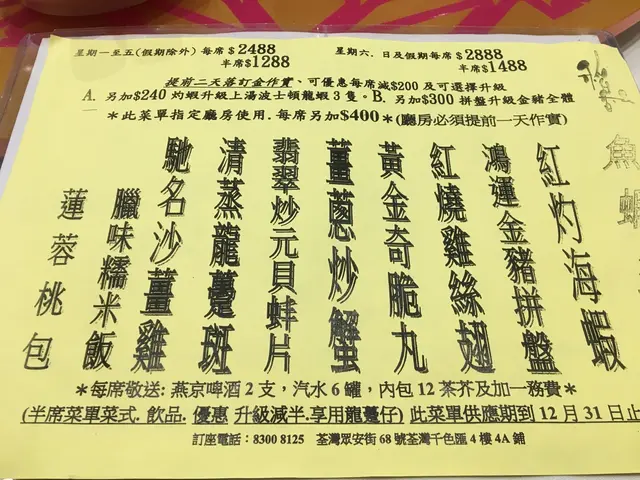 星期一至五(假期除外) 每席$2488
半席$1288
星期六.日及假期每席$2888
半席$1488
提前二天落訂金作實、可優惠每席減$200及可選擇升級
A. 另加$240 灼蝦升級上湯波士頓龍蝦3隻。B. 另加$300 拼盤升級金豬全體
*此菜單指定廳房使用.每席另加$400*(廳房必須提前一天作實)
紅灼海蝦
鴻運金豬拼盤
紅燒雞絲翅
黃金奇脆丸
薑蔥炒蟹
翡翠炒元貝蚌片
清蒸龍躉斑
馳名沙薑雞
臘味糯米飯
蓮蓉桃包
*每席敬送:燕京啤酒2支，汽水6罐，內包12茶芥及加一務費*
(半席菜單菜式.飲品.優惠 升級減半.享用龍躉仔) 此菜單供應期到12月31日止
訂座電話：8300 8125 荃灣眾安街68號荃灣千色匯4樓4A舖